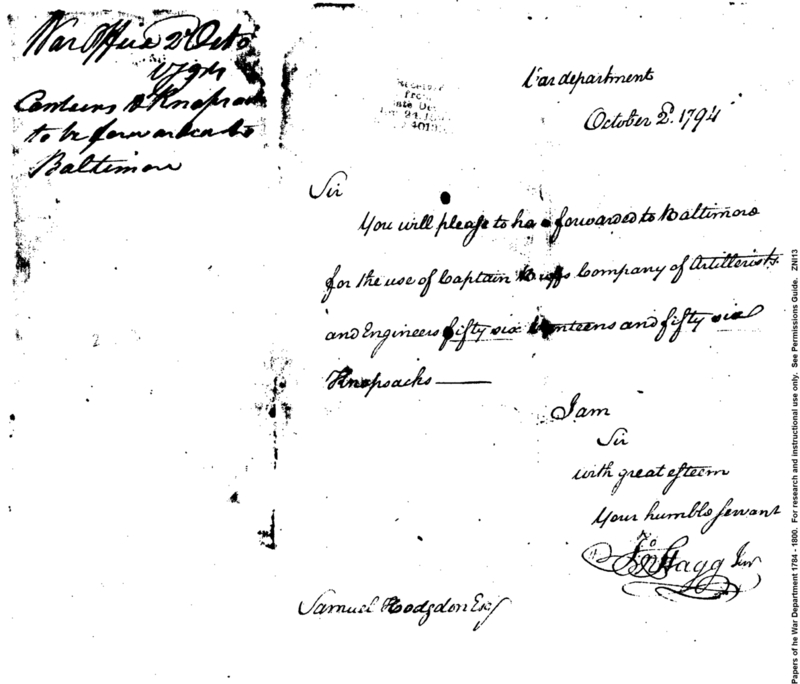 War Office 2d Octo
1794
Canteens & Knapsacks
to be forwarded to
Baltimore
Received
from
State De
24, 18
4013
War department
October 2d. 1794
Sir
You will please to have forwarded to Baltimore
for the use of Captain Company of Artillerists
and Engineers fifty six Canteens and fifty six
Knapsacks —
I am
Sir
with great esteem
Your humble servant
Jno Stagg Jur
Samuel Hodgdon Esq
Papers of he War Department 1784 - 1800. For research and instructional use only. See Permissions Guide. ZNI13